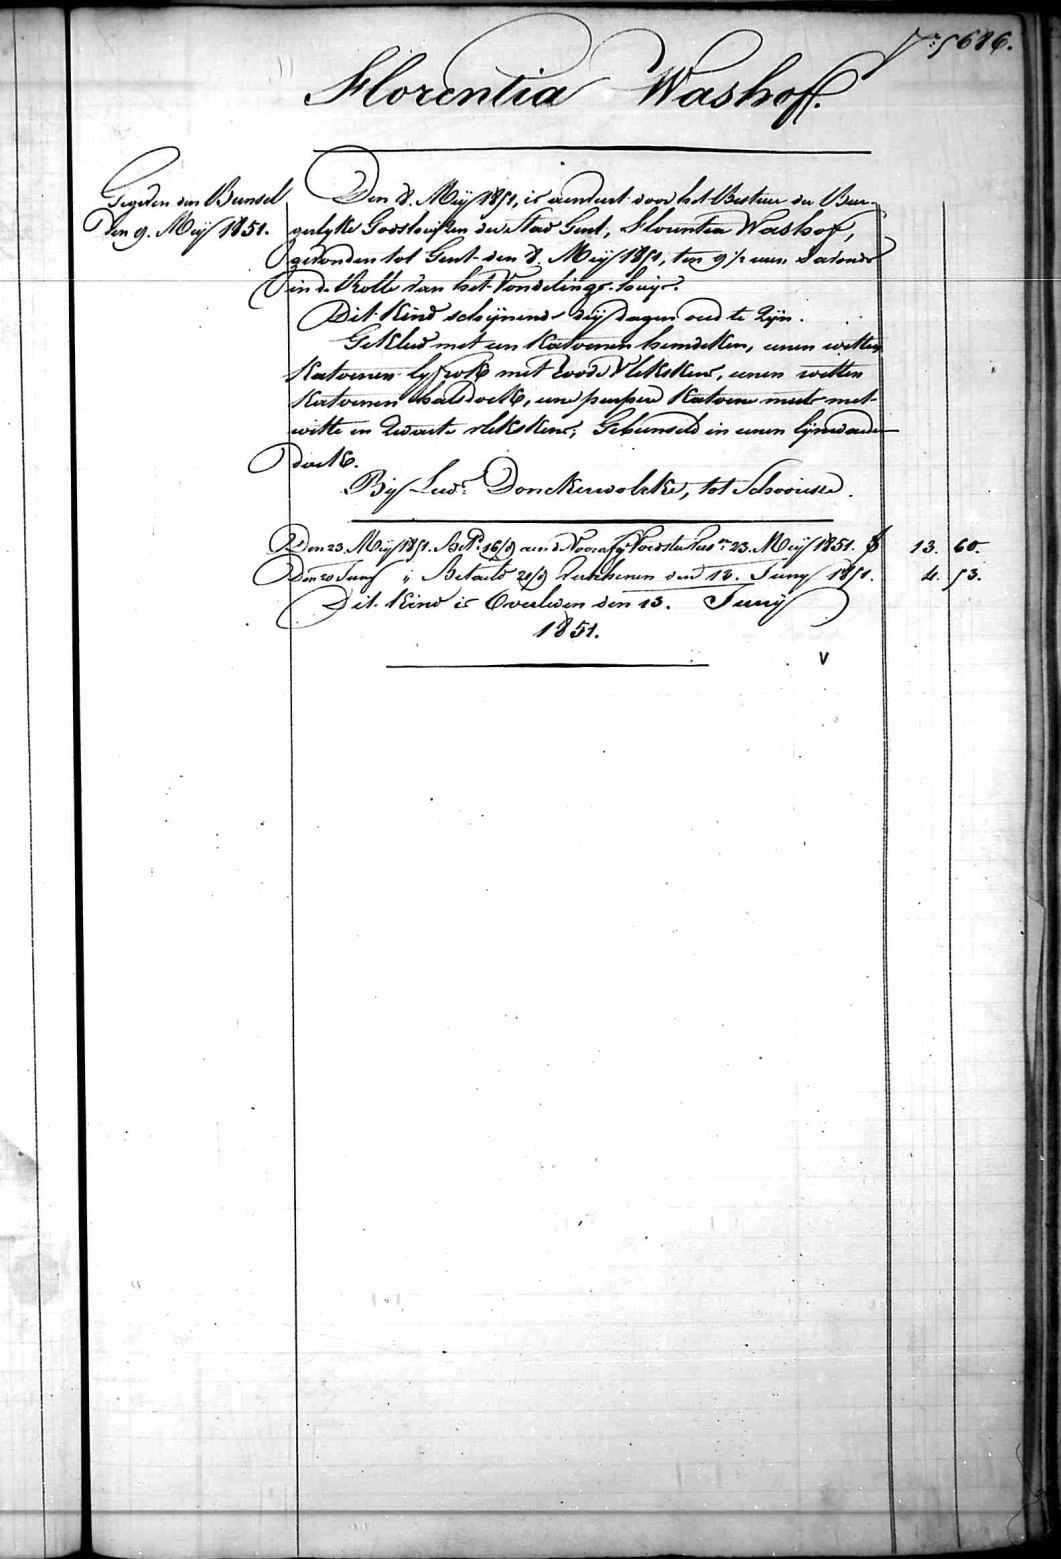 Nº 5686.
Florentia Washof.
Gegeven den Bunsel
den 9. Meij 1851.
Den 8. Meij 1851, is aenveert door het Bestuer der Bur-
gerlyke Godshuisen der Stad Gent, Florentia Washof,
gevonden tot Gent den 8. Meij 1851, ten 9 1/2 uren s'avonds
in de Rolle van het Vondelings-huys.
Dit Kind schijnende drij dagen oud te Zijn.
Gekleed met een Katoenen hemdeken, eenen witten
Katoenen lyfrok met Roode Vlekskens, eenen witten
Katoenen halsdoek, eene peerpere Katoene muts met
witte en Zwarte vlekskens; Gebunseld in eenen lijnwaeden
doek.
Bij Lud. Donckerwolcke, tot Schoorisse.
Den 23. Meij 1851. Bet. 16/9 Voorafg. 23. Meij 1851. 13. 60.
Den 20 Junij " Betaeld 21/9 den 13. Junij 1851. 4. 53.
Dit Kind is Overleden den 13. Junij
1851.
V